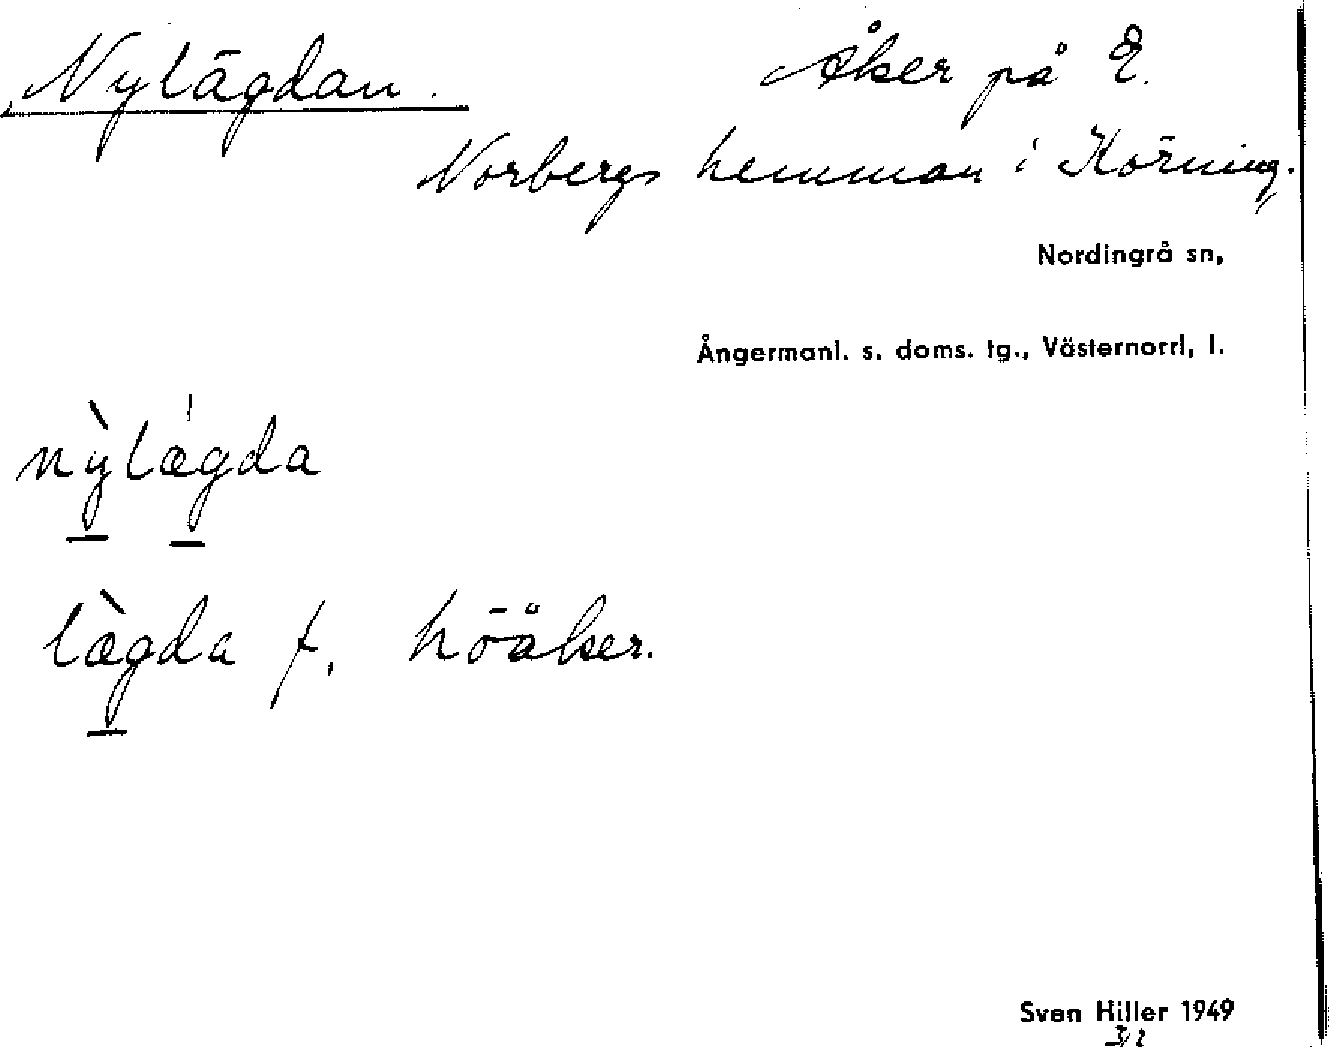 Nylägdan. Åker på E.
Norbergs hemman i Körning.
Nordingrå sn,
Ångermanl. s. doms. tg., Västernorrl, l.
nỳlægda
lægda f. höåker.
Sven Hiller 1949